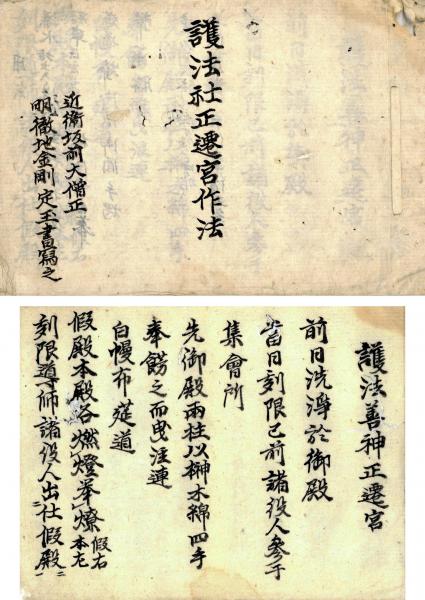 護法社正遷宮作法
近衛坂前大僧正
明徹地金剛定玉書寫之
護法善神正遷宮
前日洗淨於御殿
當日刻限已前諸役人參于
集會所
先御殿兩柱以榊木綿四手
奉餝之而曳注連
白幔布筵道
假殿本殿各燃燈挙燎 假右本左
刻限導師諸役人出仕假殿